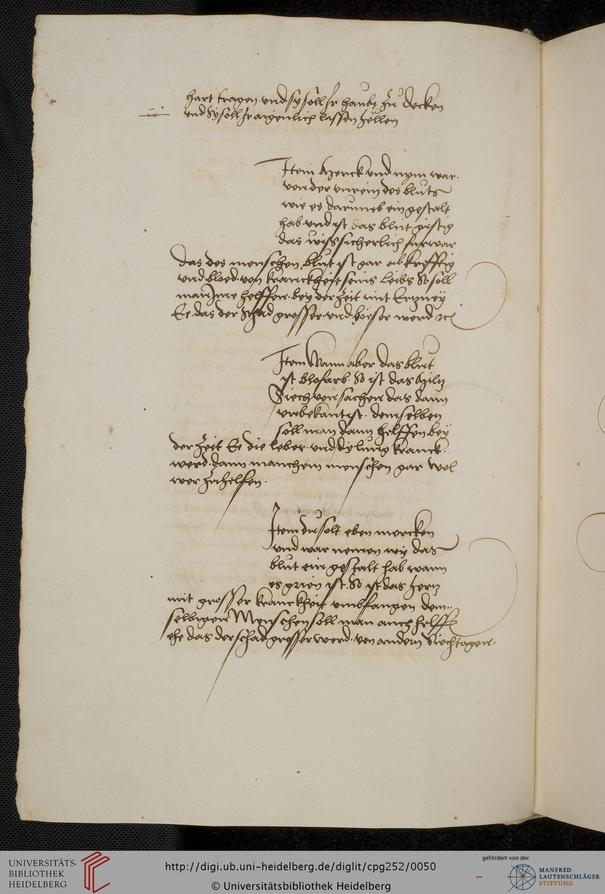 hart tragen und sy söll ir haubt zu decken
und sy soll ir aigenlich lassen zellen
Item merck und nym war
von der unrein des bluts
wie es darumb ein gestalt
hab und ist das blut gistig
das wiß sicherlich fürwar
das des menschen blut ist gar unkrefftig
und bloed von kranckheit seins leibs So soll
man Ime helffen bey der zeit mit Ertzney
Ee das der schad grosser und böser werd etc
Item Wann aber das blut
ist blofarb So ist das Miltz
Siech von sachen das dann
unbekant ist demselben
soll man dann helffen bey
der zeit Ee die leber und die lung kranck
werd dann manchem menschen gar wol
wer zu helfen
Item du solt eben mercken
und war nemen wie das
blut ein gestalt hab wann
es grien ist So ist das hertz
mit grosser kranckheit umbfangen dem
selbigen Menschen soll man auch helffen
ehe das der schad grosser werd von andern Siechtagen
UNIVERSITÄTS-
BIBLIOTHEK
HEIDELBERG
http://digi.ub.uni-heidelberg.de/diglit/cpg252/0050
© Universitätsbibliothek Heidelberg
gefördert von der
MANFRED
LAUTENSCHLÄGER
STIFTUNG